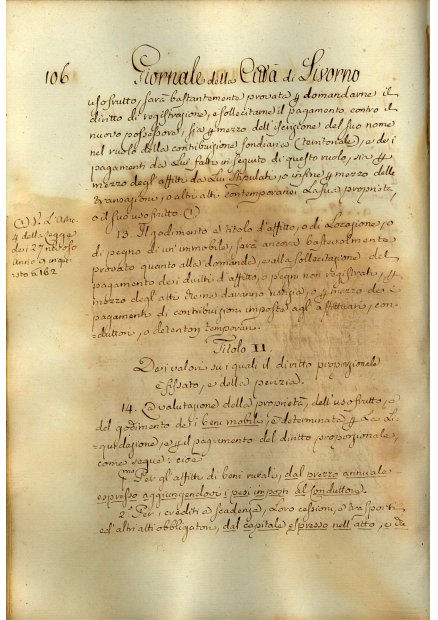 106 Giornale della Città di Livorno
usofrutto, sarà bastantemente provata p domandarne il
diritto di registrazione, e sollecitarne il pagamento contro il
nuovo possessore, sia p mezzo dell'iscrizione del suo nome
nel ruolo della contribuzione fondiaria (territoriale), e dei
pagamenti da Lui fatti in seguito di questo ruolo, sia p
mezzo degl'affitti da Lui stipulati, o infine p mezzo delle
transazioni, o altri atti contemporanei La sua proprietà,
o il suo usofrutto. (1)
4 della Legge
dei 27
anno 9
162
13. Il godimento a titolo d'affitto, o di Locazione, o
di pegno di un'immobile, sarà ancora bastevolmente
provato quanto alla domanda, e alla sollecitazione del
pagamento dei diritti d'affitto, o pegni non registrati, p
mezzo degl'atti che ne daranno notizia, o p mezzo dei
pagamenti di contribuzioni imposte agl'affittuari, con-
duttori, o detentori temporari.
Titolo II.
Dei valori su i quali il diritto proporzionale
è fissato, e della perizia.
14. La valutazione della proprietà, dell'usofrutto, e
del godimento dei beni mobili, è determinata p La Li-
quidazione, e p il pagamento del diritto proporzionale,
come segue: cioè
1.mo Per gl'affitti di beni rurali, dal prezzo annuale
espresso aggiungendovi i pesi imposti al conduttore.
2.o Per i crediti a scadenza, Loro cessioni, e trasporti
ed'altri atti obbligatori, dal capitale espresso nell'atto, e che